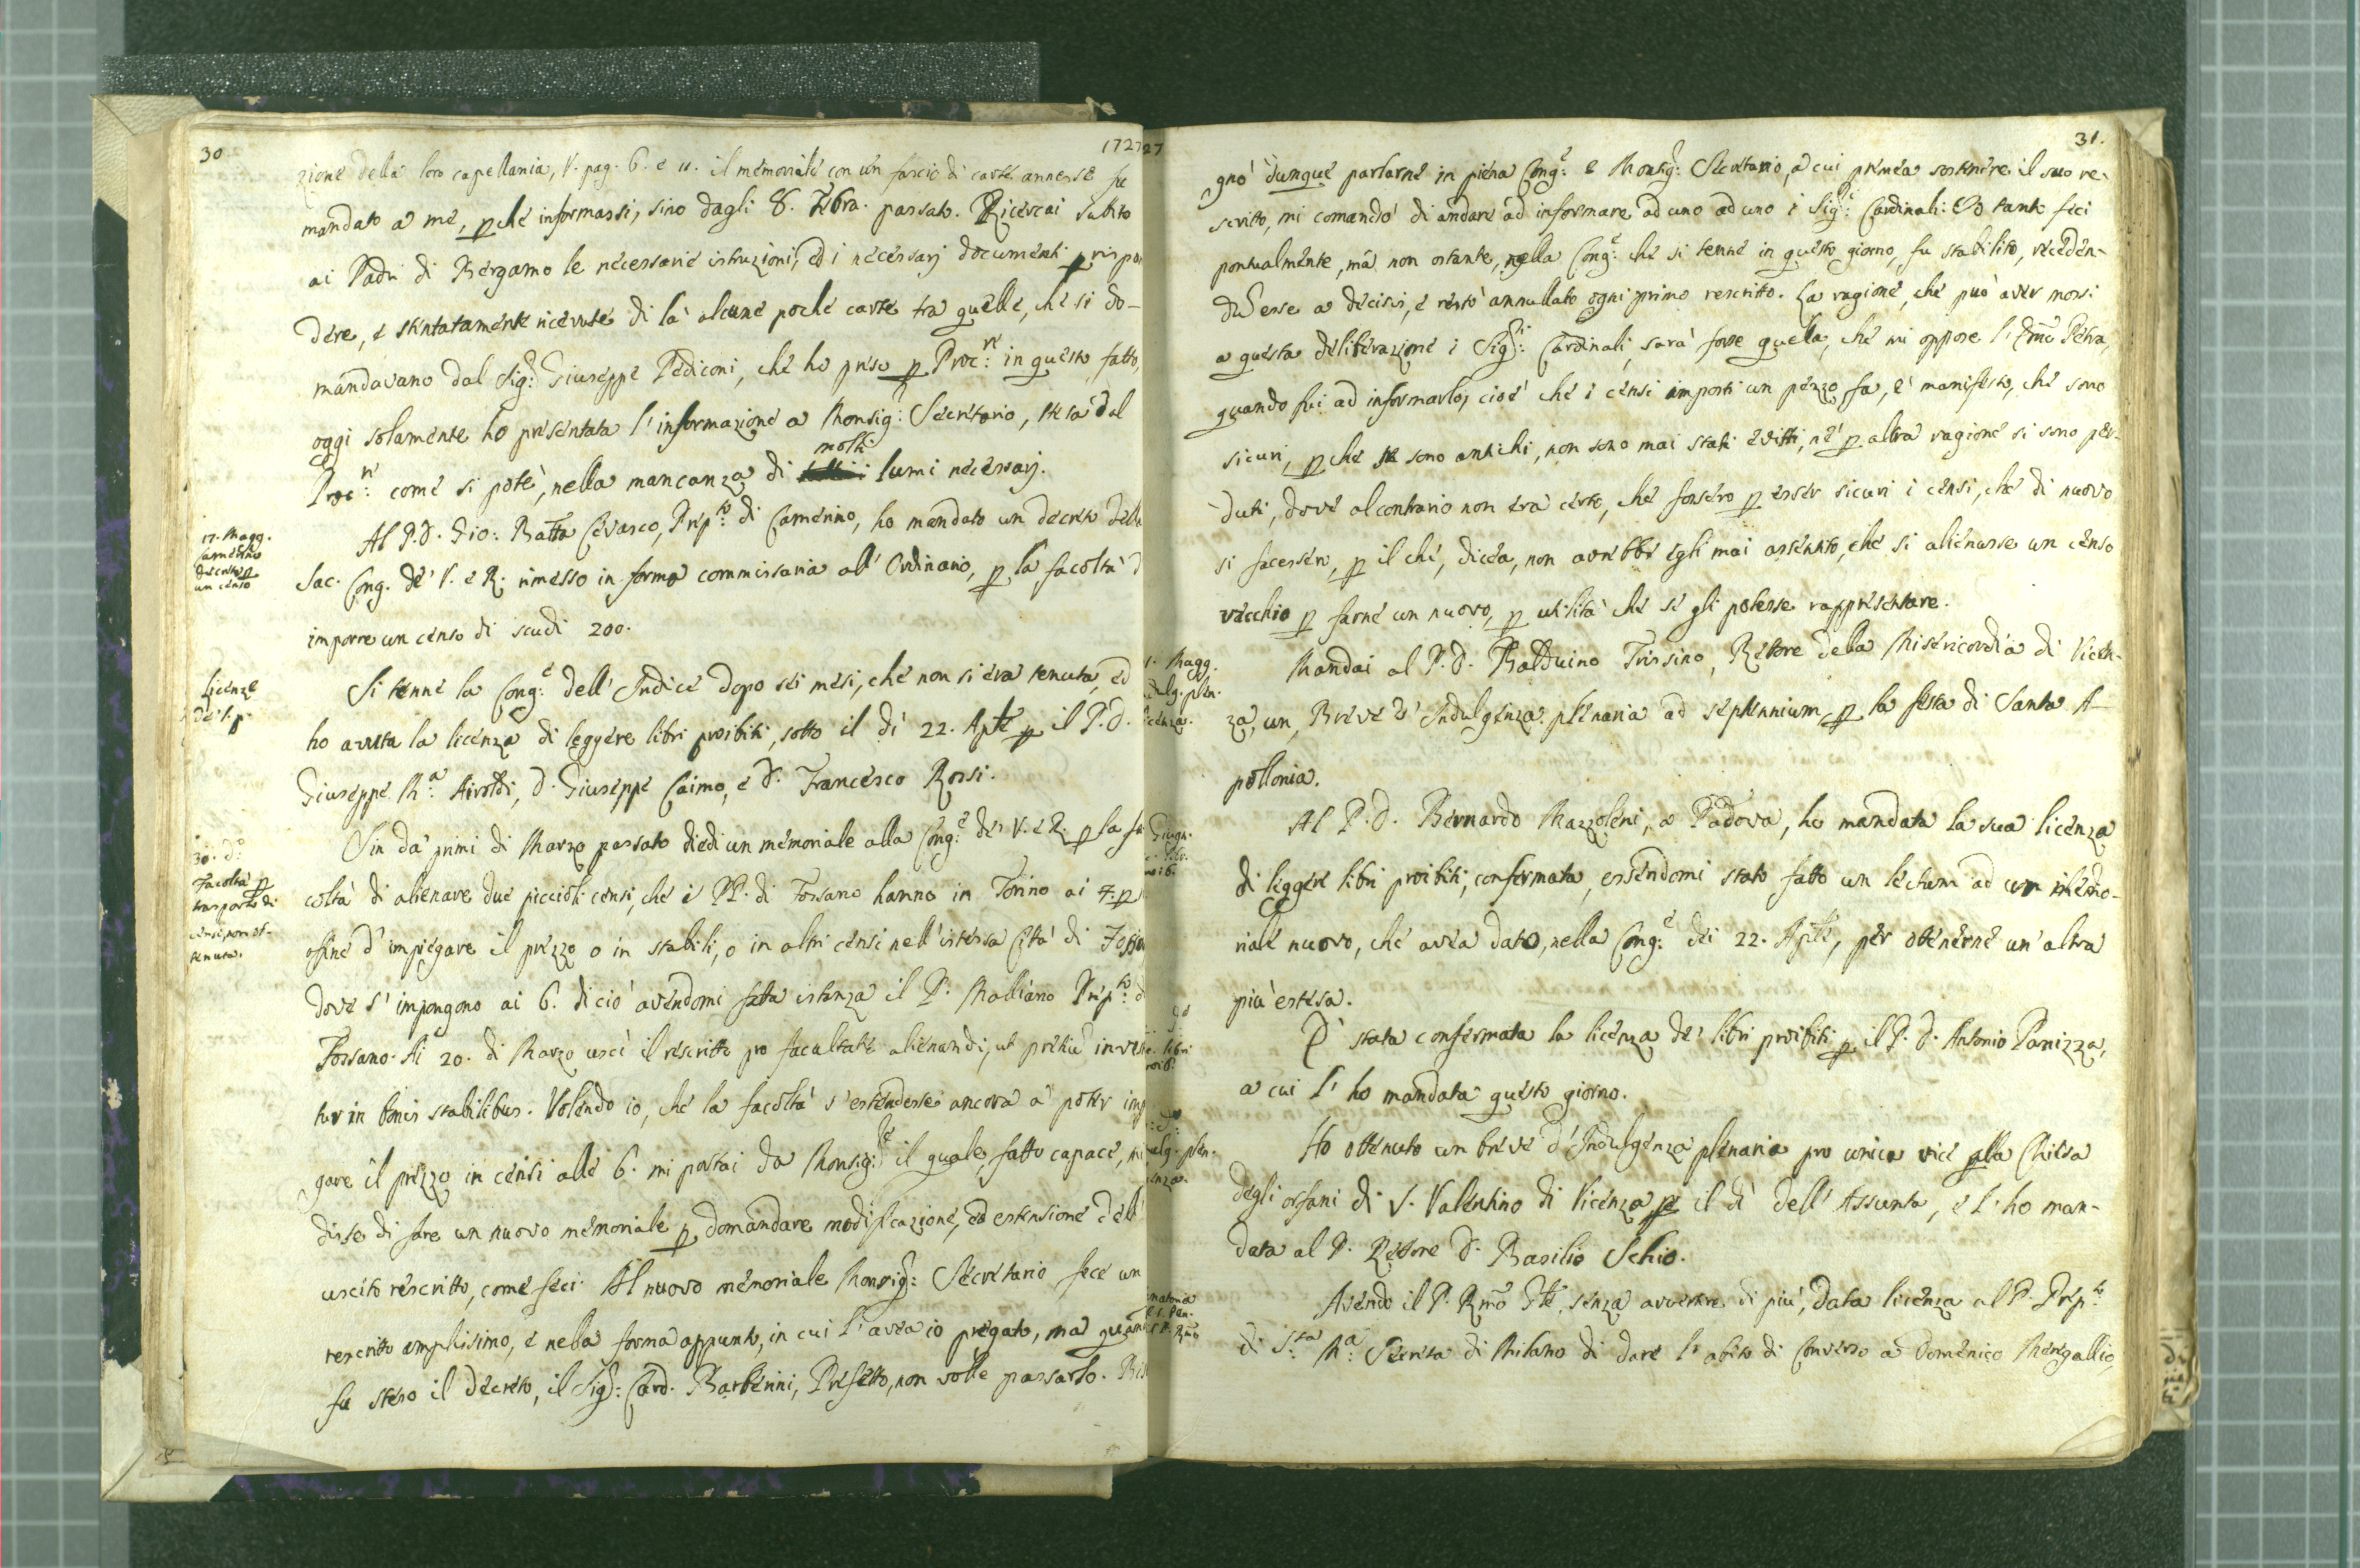 30
1727
zione della loro capellania, V. pag. 6. e 11. il memoriale con un fascio di carte annesse fu
mandato a me, pche informassi, sino dagli 8. Xbra. passato. Ricercai subito
ai Padri di Bergamo le necessarie istruzioni, ed i necessarj documenti p rispon
dere, e stentatamente ricevute di là alcune poche carte tra quelle, che si do-
mandavano dal Sig.r Giuseppe Pediconi, che ho preso p Proc.re in questo fatto,
oggi solamente ho presentata l'informazione a Monsig.r Secretario, stesa dal
molti
Proc.re come si potè, nella mancanza di lumi necessarj.
17. Magg.
Camerino
decreto p
un censo
Al P.D. Gio: Batta Cevasco, Prep.to di Camerino, ho mandato un decreto della
Sac. Cong. de' V. e R. rimesso in forma commissaria all' Ordinario, p la facoltà d
imporre un censo di scudi 200.
Licenze
de' l. p.
Si tenne la Cong.e dell' Indice dopo sei mesi, che non si era tenuta, ed
ho avuta la licenza di leggere libri proibiti, sotto il dì 22. Aple p il P.D.
Giuseppe M.a Airoldi, D. Giuseppe Caimo, e D. Francesco Rossi.
30. d.o
Facoltà p
trasporto di
censi, non ot-
tenuta.
Sin da' primi di Marzo passato diedi un memoriale alla Cong.e de' V. e R. p la fa
coltà di alienare due piccioli censi, che i PP. di Fossano hanno in Torino ai 4. p
offine d'impiegare il prezzo o in stabili, o in altri censi nell'istessa Città di Fossan
dove s'impongono ai 6. di ciò avendomi fatta istanza il P. Malliano Prep.to d
Fossano. Ai 20. di Marzo uscì il rescritto pro facultate alienandi, ut pretiu inves
tur in bonis stabilibus. Volendo io, che la facoltà s'estendesse ancora a poter imp
gare il prezzo in censi alle 6. mi portai da Monsig.re il quale, fatto capace, mi
disse di fare un nuovo memoriale p domandare modificazione, ed estensione dell'
uscito rescritto, come feci. Al nuovo memoriale Monsig.r Secretario fece un
rescritto amplissimo, e nella forma appunto, in cui l'avea io pregato, ma quand
fu steso il decreto, il Sig.r Card. Barberini, Prefetto, non volle passarlo. Bis
27
31.
gnò dunque parlarne in piena Cong.e e Monsig.r Secretario, a cui premea sostenere il suo re-
scritto, mi comandò di andare ad informare ad uno ad uno i Sig.ri Cardinali: Io tanto feci
pontualmente, ma non ostante, nella Cong.e che si tenne in questo giorno, fu stabilito, recéden-
du esse a decisis, e restò annullato ogni primo rescritto. La ragione, che può aver mossi
a questa deliberazione i Sig.ri Cardinali, sarà forse quella, che mi oppose l'Emo Petra,
quando fui ad informarlo, cioè che i censi imposti un pezzo fa, è manifesto, che sono
sicuri, pche se sono antichi, non sono mai stati estitti, nè p altra ragione si sono per-
duti, dove al contrario non era certo, che fossero p esser sicuri i censi, che di nuovo
si facessero, p il che, dicea, non avrebbe egli mai assentito, che si alienasse un censo
vecchio p farne un nuovo, p utilità che se gli potesse rappresentare.
Magg.
ndulg. plen.
icenza.
Mandai al P.D. Balduino Trissino, Rettore della Misericordia di Vicen-
za, un Breve d'Indulgenza plenaria ad septennium, p la festa di Santa A-
pollonia.
Giugn.
Al P.D. Bernardo Mazzoleni, a Padova, ho mandata la sua licenza
di leggere libri proibiti, confermata, essendomi stato fatto un lectum ad un memo-
riale nuovo, che avea dato, nella Cong.e dei 22. Aple, per ottenerne un'altra
più estesa.
libri
È stata confermata la licenza de' libri proibiti p il P.D. Antonio Panizza,
a cui l'ho mandata questo giorno.
ulg. plen.
enza.
Ho ottenuto un breve d'Indulgenza plenaria pro unica vice plla Chiesa
degli orfani di S. Valentino di Vicenza, p il dì dell' Assunta, e l'ho man-
data al P. Rettore D. Basilio Schio.
Avendo il P. Rmo Gle, senza avvertire di più, data licenza al P. Prep.to
di S.ta M.a Secreta di Milano di dare l'abito di Converso a Domenico Meregallio,